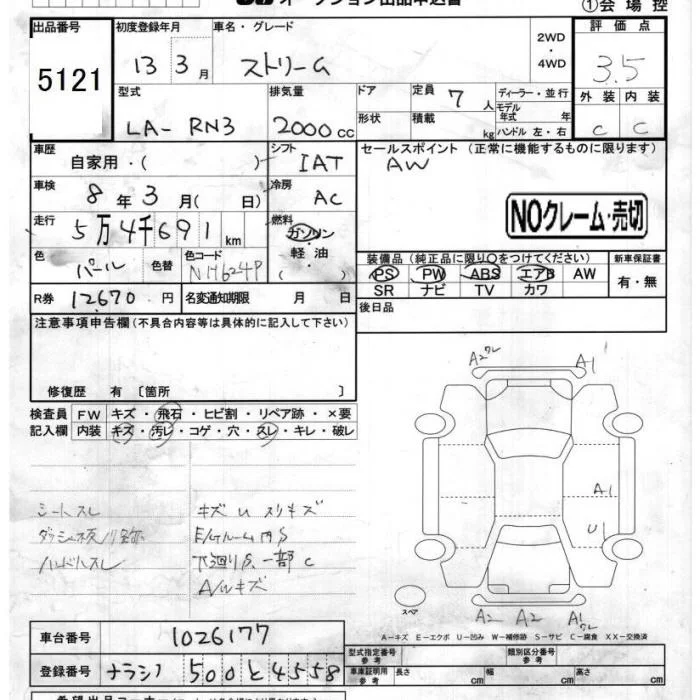 オークション出品申込書
①会場控
出品番号 初度登録年月 車名・グレード 2WD・4WD 評価点
5121 13 3月 ストリーム 3.5
型式 排気量 ドア 定員 7人 ディーラー・並行 外装 内装
LA- RN3 2000cc 形状 積載 kg モデル年式 年 ハンドル 左・右 C C
車歴 自家用・( ) シフト IAT セールスポイント (正常に機能するものに限ります)
AW
車検 8年3月( 日) 冷房 AC
NOクレーム・売切
走行 5万4千691km 燃料 ガソリン・軽油 ( )
色 パール 色替 色コード NH624P
装備品 (純正品に限り○をつけてください) 新車保証書
PS PW ABS エアB AW 有・無
SR ナビ TV カワ
R券 12670円 名変通知期限 月 日
後日品
注意事項申告欄 (不具合内容等は具体的に記入して下さい)
修復歴 有 〔箇所 〕
検査員 FW キズ・飛石・ヒビ割・リペア跡・×要
記入欄 内装 キズ・汚レ・コゲ・穴・スレ・キレ・破レ
A2 ワレ A1
A1
U1
シートスレ キズ U スリキズ
E/Gルーム内S
ハンドルスレ 下廻りS、一部C
A/Wキズ
スペア
A2 A2 A1 ワレ
A−キズ E−エクボ U−凹み W−補修跡 S−サビ C−腐食 XX−交換済
車台番号 1026177
型式指定番号 参考 類別区分番号 参考
登録番号 ナラシ 500と4558
車庫証明用 参考 長さ cm 幅 cm 高さ cm